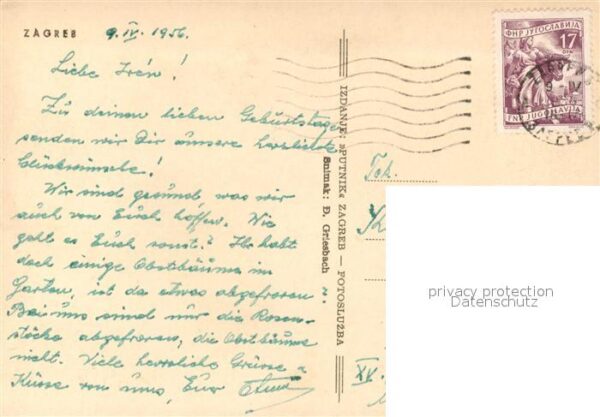 ZAGREB 9. IV. 1956.
Liebe Irén!
Zu deinem lieben Geburtstage
senden wir Dir unsere herzlichste
Glückwünsche!
Wir sind gesund, was wir
auch von Euch hoffen. Wie
geht es Euch sonst? Ihr habt
doch einige Obstbäume im
Garten, ist da etwas abgefroren
Bei uns sind nur die Rosen-
stöcke abgefroren, die Obstbäume
nicht. Viele herzliche Grüsse u
Küsse von uns, Euer
IZDANJE: »PUTNIK« ZAGREB — FOTOSLUŽBA
Snimak: Đ. Griesbach
ФНР ЈУГОСЛАВИЈА
17
DIN
FNR JUGOSLAVIJA
9-IV
XV.
privacy protection
Datenschutz